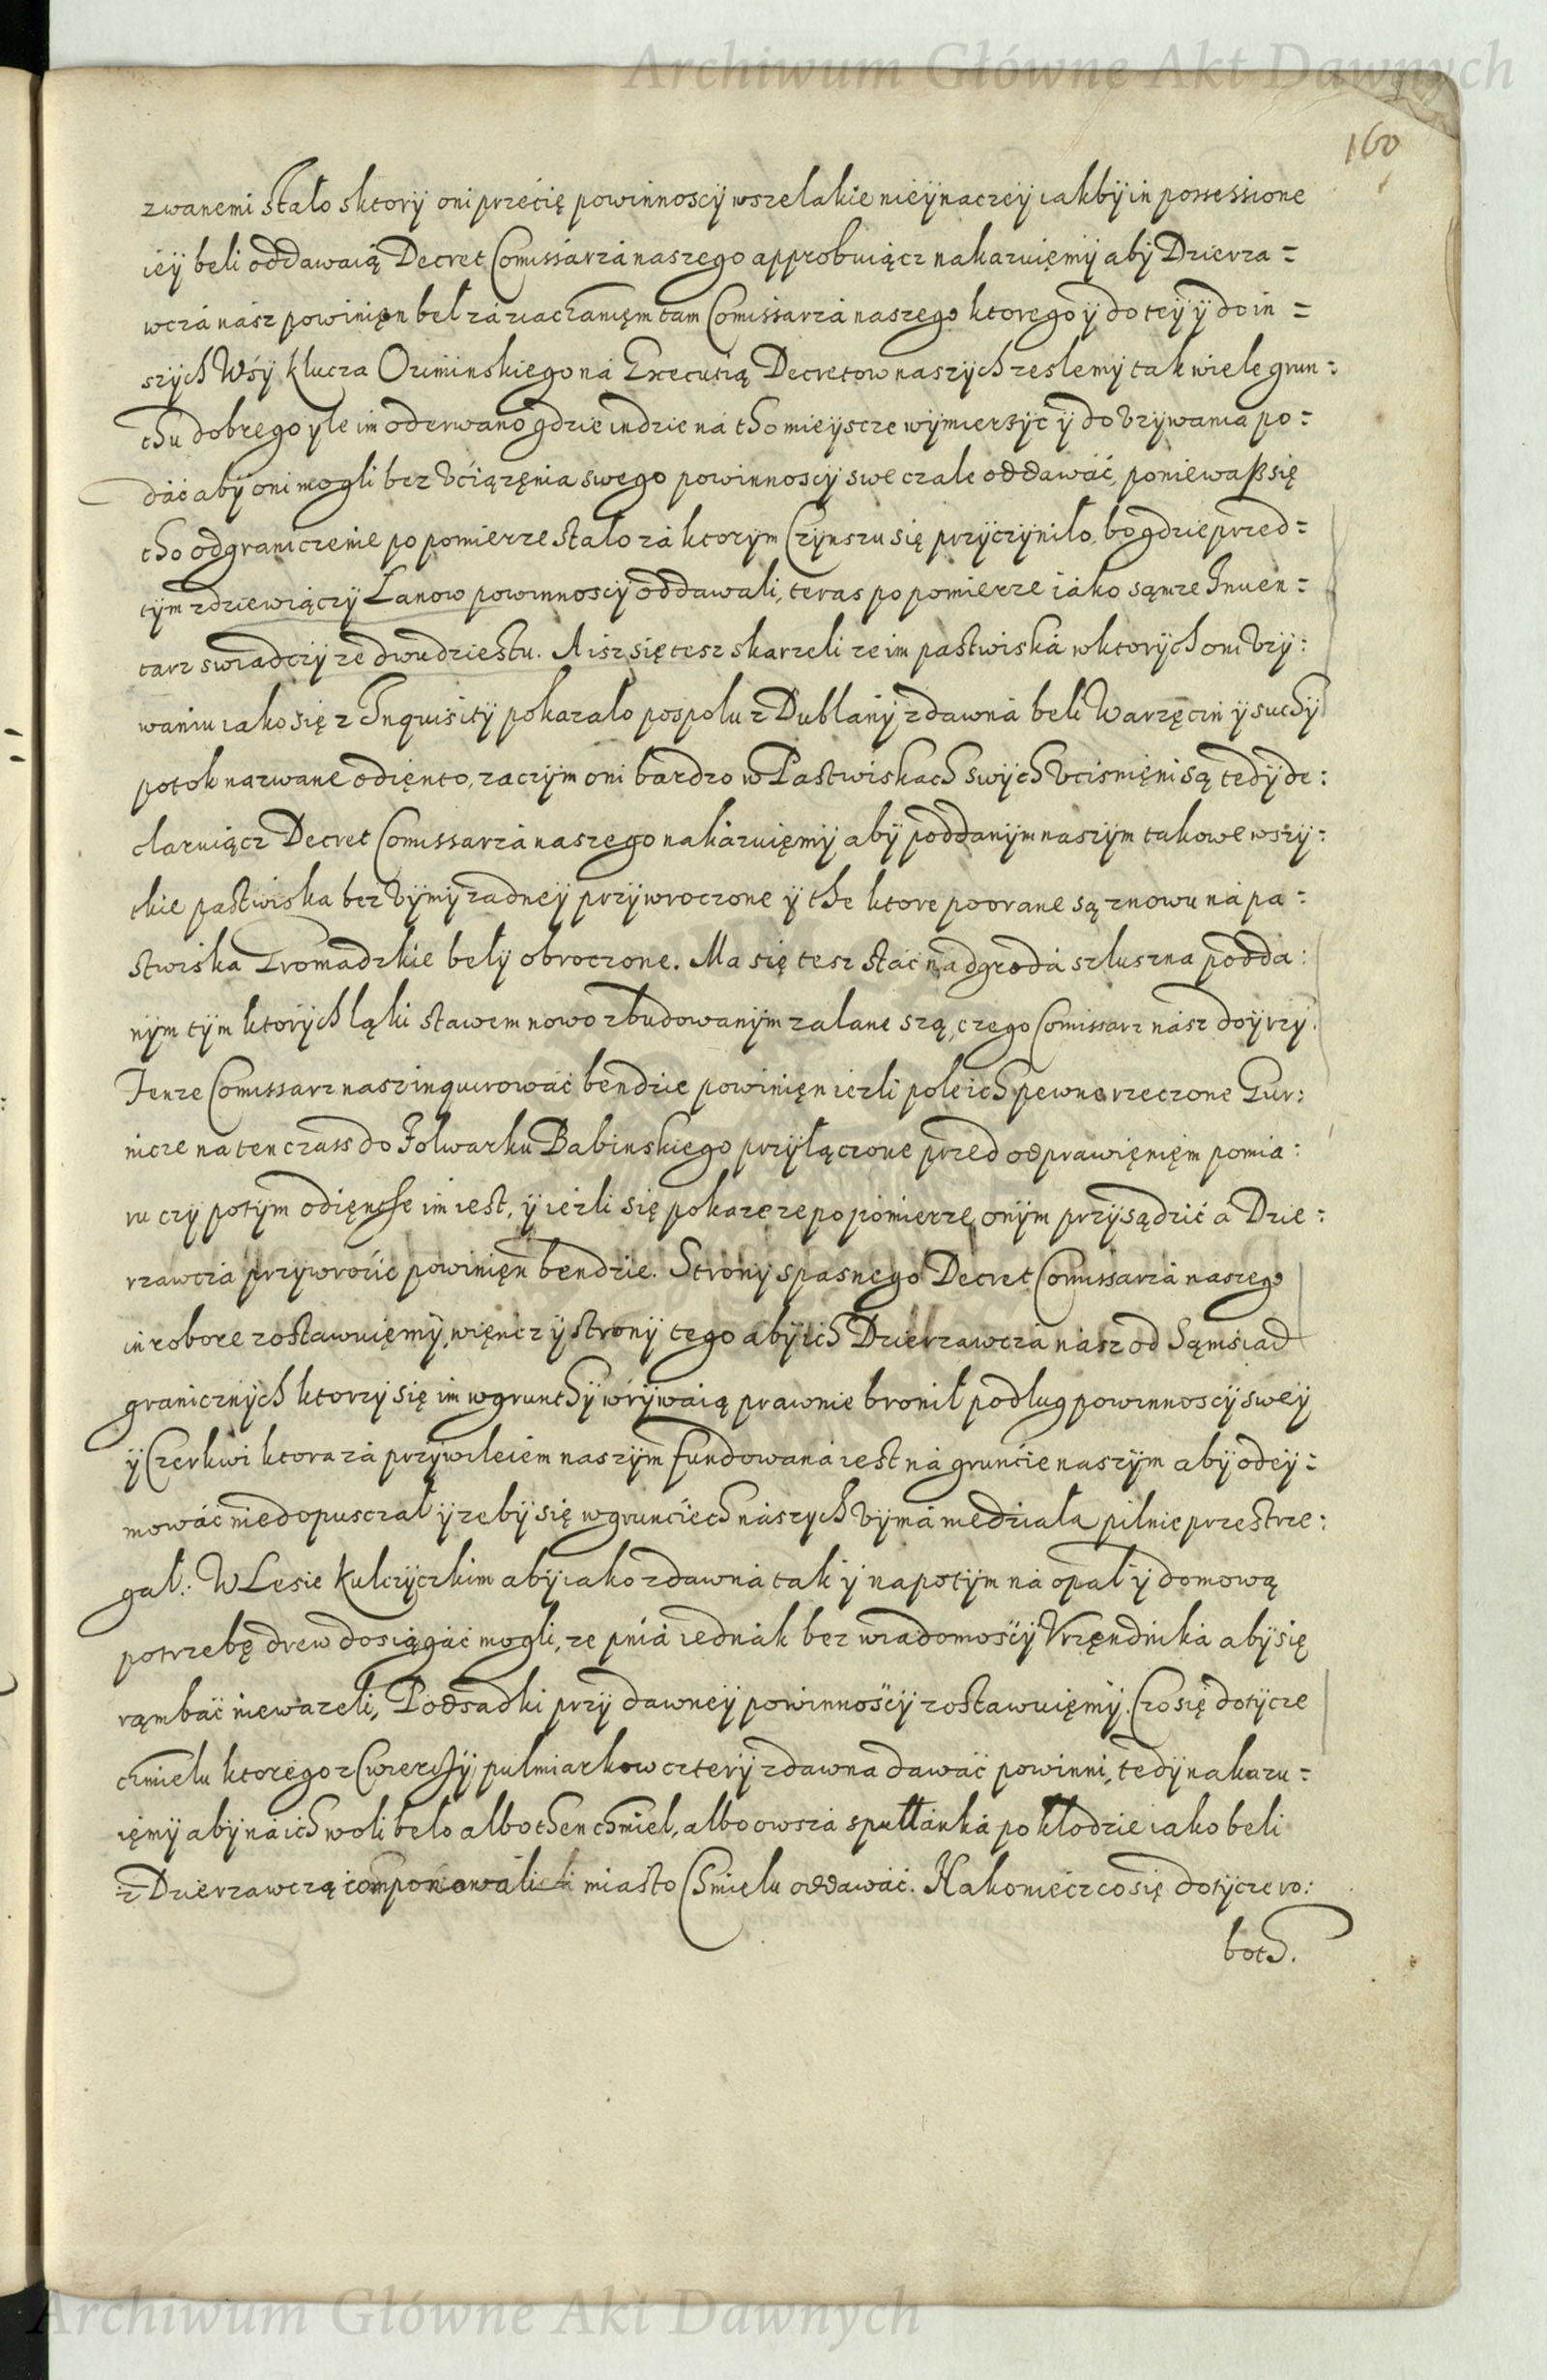 Archiwum Główne Akt Dawnych
160
zwanemi stało sktory oni przecię powinnoscy wszelakie nieynaczey iakby in possessione
iey beli oddawaią Decret Comissarza naszego approbuiącz nakazuięmy aby Dzierza=
wcza nasz powinięn bel za ziachanięm tam Comissarza naszego ktorego y do tey y do in=
szych Wsy klucza Oziminskiego na Executią Decretow naszych zeslemy tak wiele grun:
thu dobrego yle im oderwano gdzie indzie na tho mieyscze wymierzyc y do vzywania po=
dać aby oni mogli bez vciązęnia swego powinnoscy swe czale oddawać, poniewasz się
tho odgraniczenie po pomierze stało za ktorym Czynszu się przyczyniło, bo gdzie przed=
tym z dziewiączy Łanow powinnoscy oddawali, teras po pomierze iako sąmze Inuen=
tarz swiadczy ze dwudziestu. A isz się tesz skarzeli ze im pastwiska w ktorych oni vzy:
waniu iako się z Inquisity pokazało pospolu z Dublany zdawna beli Warzęczin y suchy
potok nazwane odięnto, zaczym oni bardzo w Pastwiskach swych vcisnięni są tedy de:
claruiącz Decret Comissarza naszego nakazuięmy aby poddanym naszym takowe wszy:
tkie pastwiska bez vymy zadney przywroczone y the ktore poorane są znowu na pa=
stwiska Gromadzkie bely obroczone. Ma się tesz stać nadgroda szluszna podda:
nym tym ktorych łąki stawem nowo zbudowanym zalane szą, czego Comissarz nasz doyrzy.
Tenze Comissarz nasz inquirować bendzie powinięn iezli pole ich pewne rzeczone Gur:
nicze na ten czass do Folwarku Babinskiego przyłączone przed odprawięnięm pomia:
ru czy potym odięnthe im iest, y iezli się pokaze ze po pomierze, onym przysądzić a Dzie:
rzawcza przywrocić powinięn bendzie. Strony spasnego Decret Comissarza naszego
in robore zostawuięmy, więncz y strony tego aby ich Dzierzawcza nasz od Sąmsiad
granicznych ktorzy się im w grunthy wrywaią prawnie bronił podług powinnoscy swey
y Czerkwi ktora za przywileiem naszym fundowana iest na gruncie naszym aby odey=
mowác niedopusczał y zeby się w grunciech naszych vyma niedziała pilnie przestrze:
gał. W Lesie Kulczyczkim aby iako zdawna tak y napotym na opał y domową
potrzebę drew dosiągać mogli, ze pnia iednak bez wiadomosci Vrzęndnika aby się
rąmbać niewazeli, Podsadki przy dawney powinnoscy zostawuięmy. Czo się dotycze
chmielu ktorego z Cwierthy pulmiarkow cztery zdawna dawać powinni, tedy nakazu=
ięmy aby na ich woli belo albo then chmiel, albo owsza sputtanka po kłodzie iako beli
z Dzierzawczą componowali miasto Chmielu oddawać. Nakoniecz co się dotycze ro:
both.
Archiwum Główne Akt Dawnych